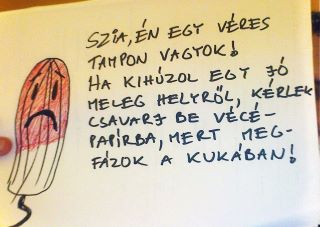 SZIA, ÉN EGY VÉRES
TAMPON VAGYOK!
HA KIHÚZOL EGY JÓ
MELEG HELYRŐL, KÉRLEK
CSAVARJ BE VÉCÉ-
PAPÍRBA, MERT MEG-
FÁZOK A KUKÁBAN!